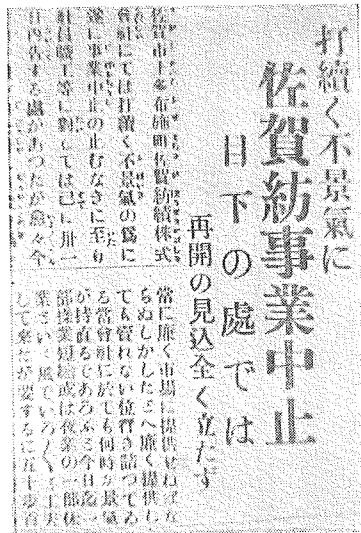 打續く不景氣に
佐賀紡事業中止
目下の處では
再開の見込全く立たず
佐賀市十多布施町佐賀紡績株式
會社にては打續く不景氣の爲に
遂に事業中止の止むなきに至り
社員職工等に對しては已に卅一
日內吿する處があつたが愈々今
常に廉く市場に提供せねばな
らぬしかしたとへ廉く提供し
ても賣れない位買き詰つてゐ
る當會社に於ても何時か景氣
が持直るであろふと今日迄一
部操業短縮或は夜業の一部休
業さいふ風でいろ〳〵と工夫
して來たが要するに五十步百